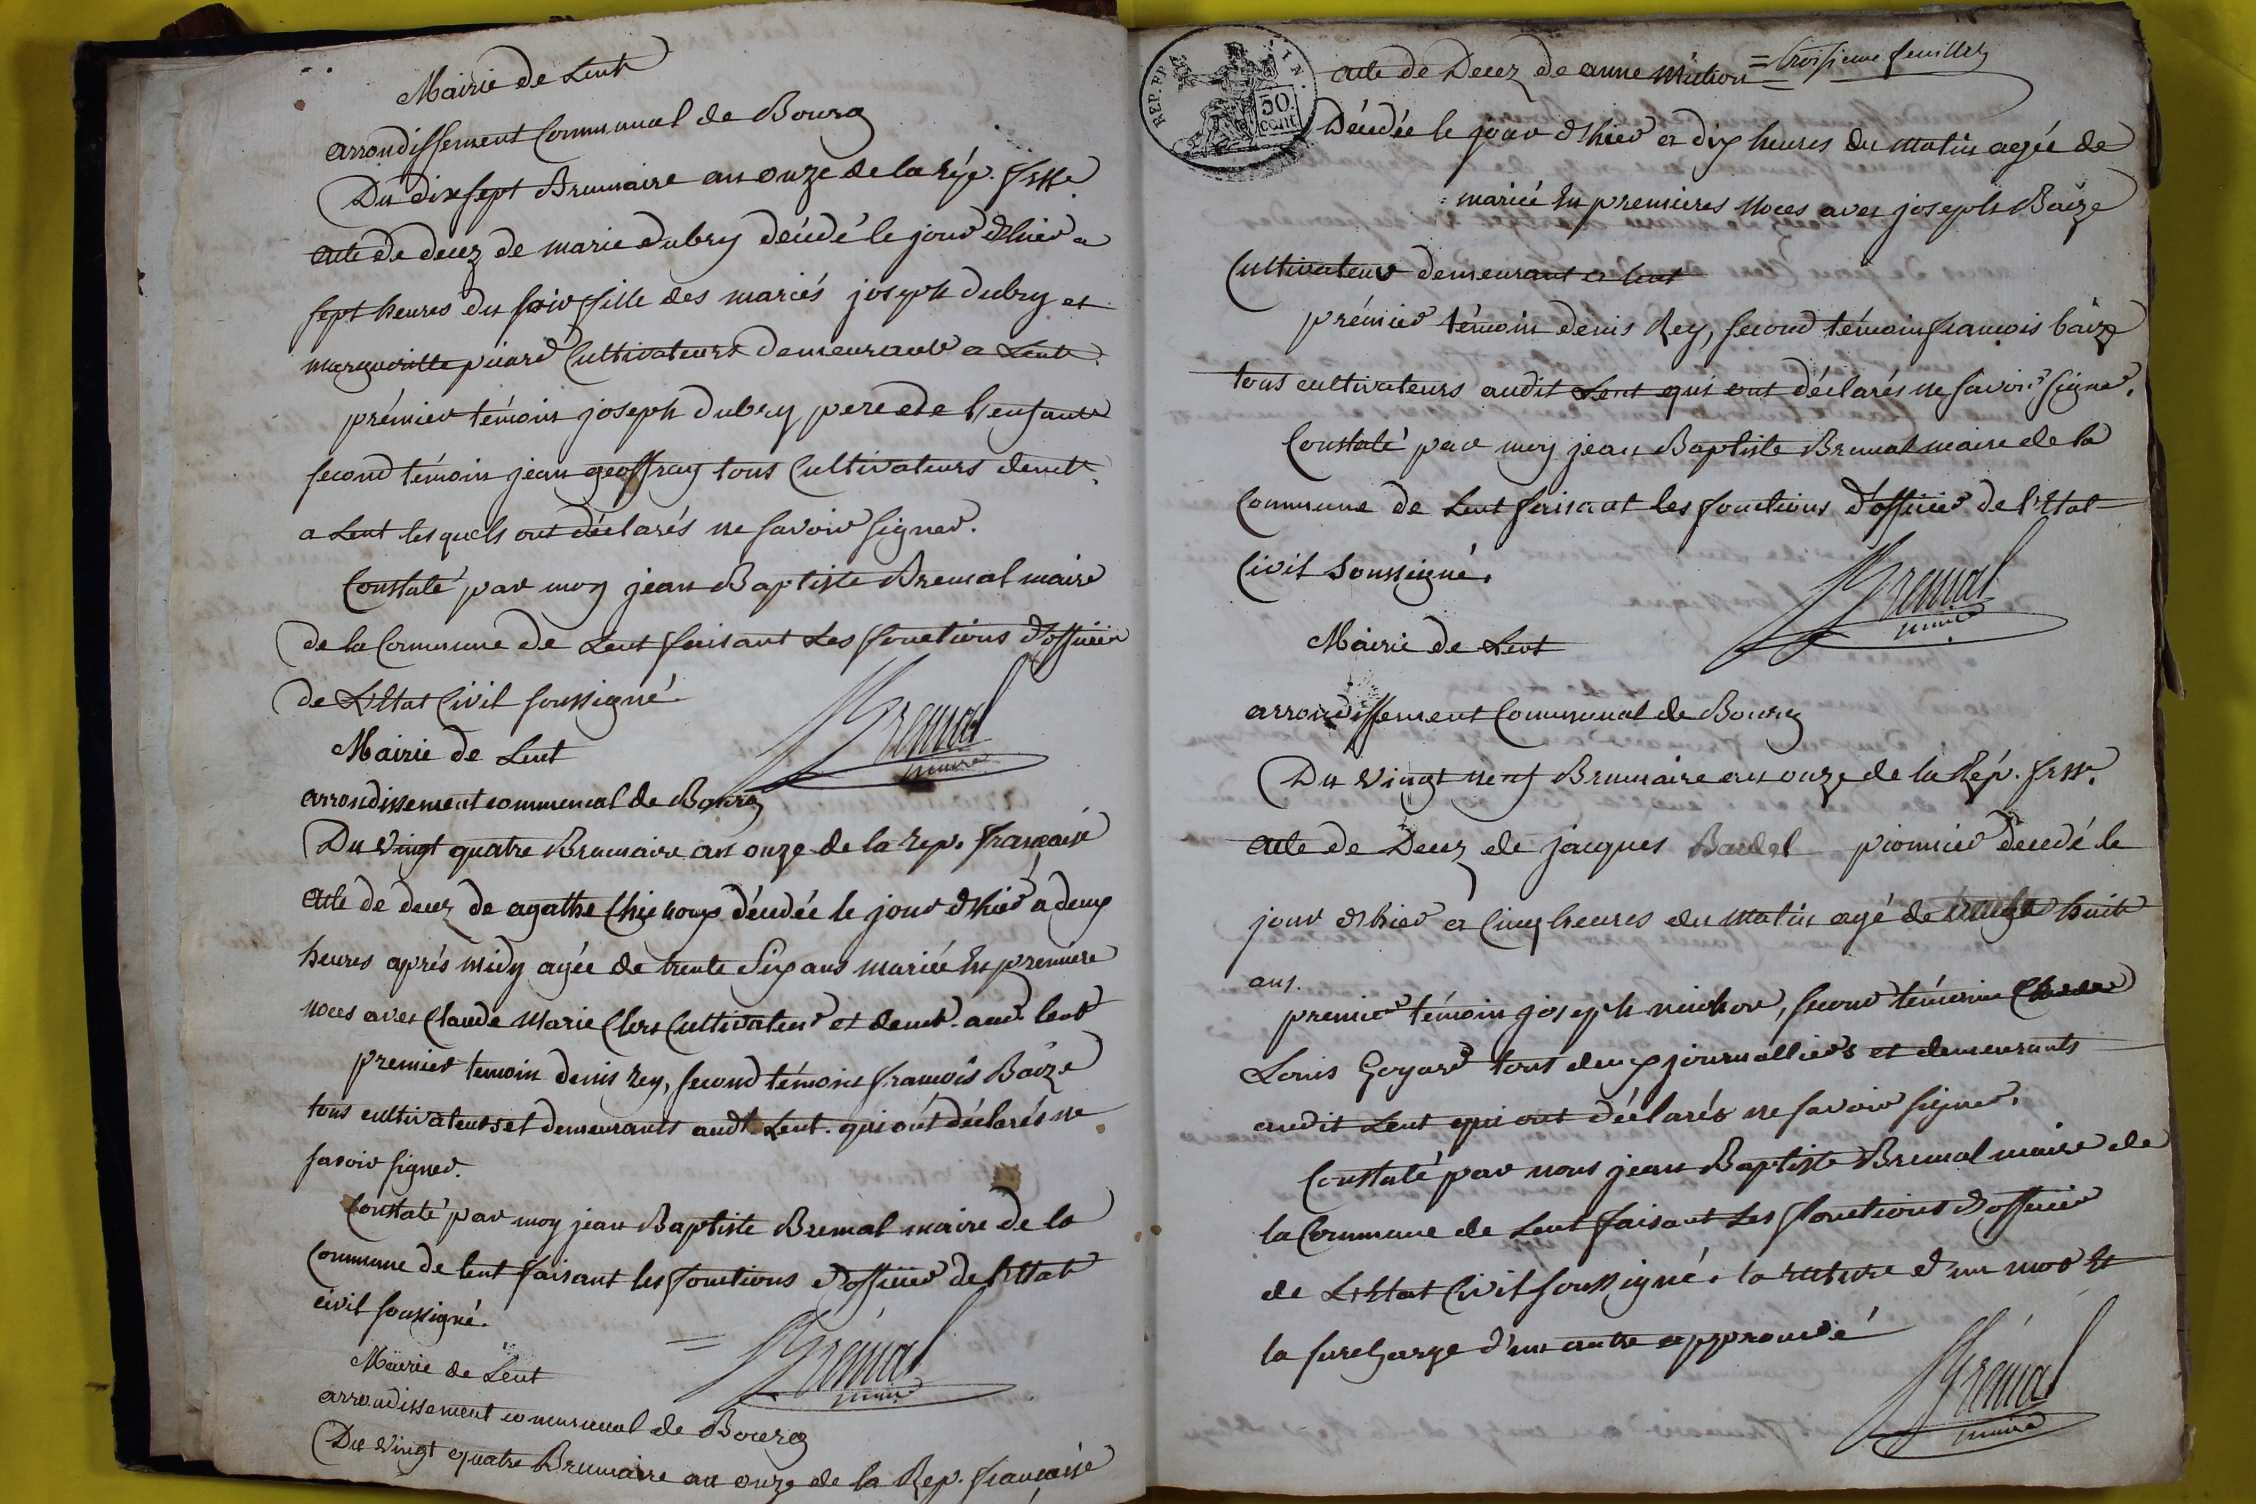 Mairie de Lent
arrondissement Communal de Bourg
Du dix sept Brumaire an onze de la rép. frse.
Acte de decez de marie dubry décédé le jour d'hier a
sept heures du soir fille des mariés joseph dubry et
margueritte Cultivateurs demeurant a Lent.
prémier témoin joseph dubry pere de l'enfant
second témoin jean geoffray tous Cultivateurs demt.
a Lent les quels ont déclarés ne savoir signer.
Constaté par moy jean Baptiste Bremal maire
de la Commune de Lent faisant Les fonctions d'officier
de L'Etat Civil soussigné
Bremal
maire
Mairie de Lent
arrondissement communal de Bourg
Du vingt quatre Brumaire an onze de la rep. française
Acte de decez de agathe décédée le jour d'hier à deux
heures aprés midy agée de trente Six ans mariée En premiere
noces avec Claude Marie Clerc Cultivateur et demt. audt. lent
premier temoin denis rey, second témoin françois Baize
tous cultivateurs et demeurants audt. Lent. qui ont déclarés ne
savoir signer.
Constaté par moy jean Baptiste Bremal maire de la
Commune de lent faisant les fonctions d'officier de l'Etat
civil soussigné.
Brémal
maire
Mairie de Lent
arrondissement communal de Bourg
Du vingt quatre Brumaire an onze de la Rep. française
= troisieme feuillet
REP. FR
50.
cent
acte de Decez de anne
Décédée le jour d'hier a dix heures du matin agée de
mariée En premieres noces avec joseph Baize
Cultivateur demeurant a lent
prémier témoin denis Rey, second témoin françois baize
tous cultivateurs audit Lent qui ont déclarés ne savoir signer.
Constaté par moy jean Baptiste Bremal maire de la
Commune de Lent faisant les fonctions d'officier de l'Etat
Civil soussigné.
Bremal
maire
Mairie de Lent
arrondissement Communal de Bourg
Du vingt neuf Brumaire an onze de la Rép. frse.
acte de Decez de jacques pionnier decedé le
jour d'hier a Cinq heures du matin agé de huit
ans.
premier témoin joseph michon, second témoin
Louis Goyard tout deux journalliers et demeurants
audit Lent qui ont déclarés ne savoir signer.
Constaté par nous jean Baptiste Bremal maire de
la Commune de Lent faisant Les fonctions d'officier
de L'Etat Civil soussigné. la rature d'un mot Et
la surcharge d'un autre approuvé
Brémal
maire